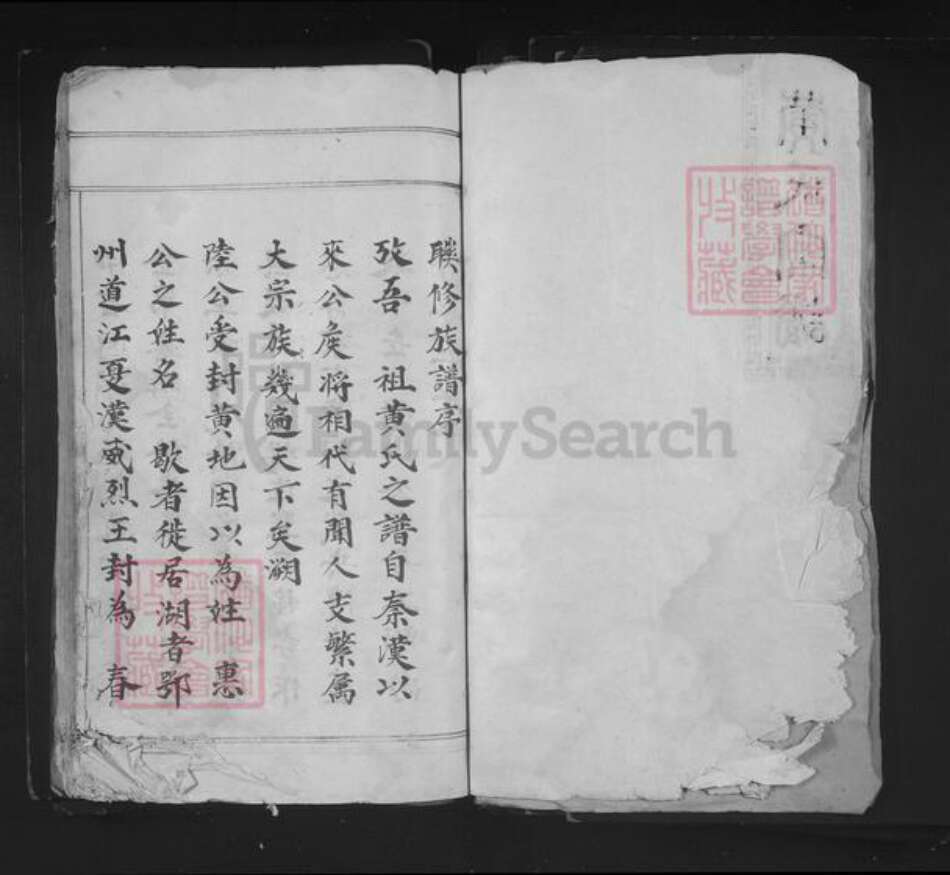 聨修族譜序
攷吾　祖黄氏之譜自秦漢以
來公矦將相代有聞人支繁属
大宗族幾遍天下矣溯
陸公受封黄地因以為姓　惠
公之姓名　歇者徙居湖者鄂
州道江夏漢威烈王封為　春
譜學會
收藏
FamilySearch